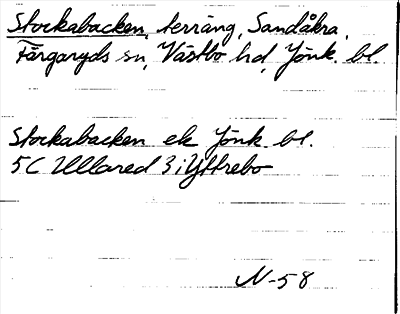 Stockabacken, terräng, Sandåkra,
Färgaryds sn, Västbo hd, Jönk. bl.
Stockabacken ek Jönk. bl.
5C Ullared 3 i Yttrebo
N-58